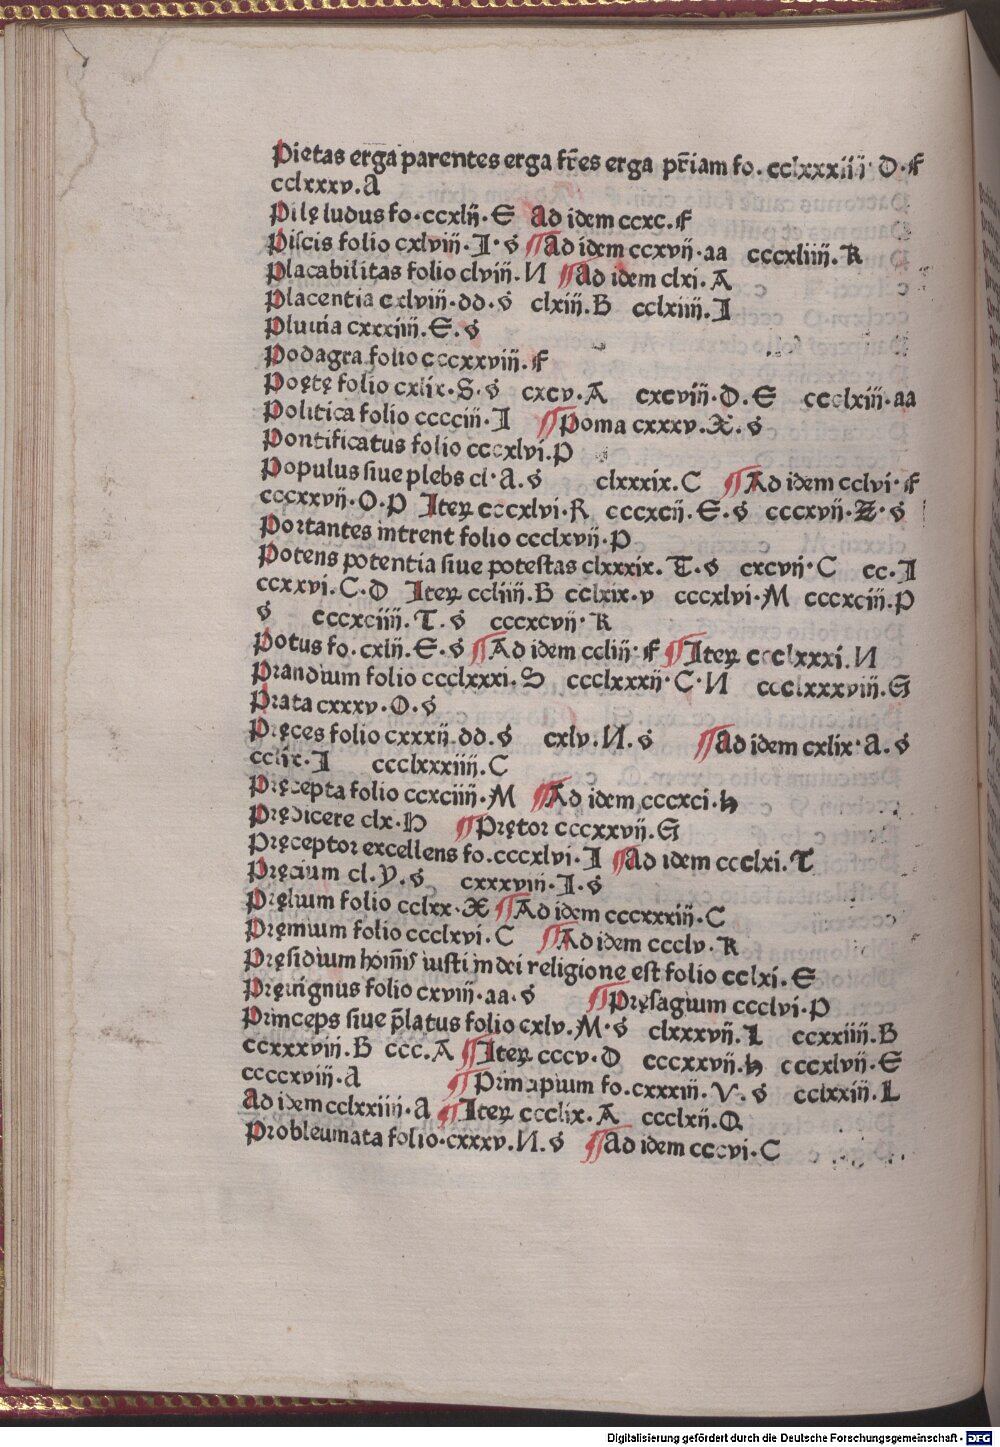 Pietas erga parentes erga fr̄es erga pr̄iam fo. cclxxxiiii· D·F
cclxxxv.A
Pilę ludus fo·ccxlii·E Ad idem ccxc.F
Piscis folio cxlviii·I·s ¶Ad idem ccxvii·aa cccxliiii.K
Placabilitas folio clviii.N ¶Ad idem clxi.A
Placentia cxlviii·dd·s clxiii.B cclxiiii.I
Pluuia cxxxiiii.E.s
Podagra folio cccxxviii.F
Poętę folio cxlix·S.s cxcv.A cxcviii·D.E ccclxiii·aa
Politica folio cccciii·I ¶Poma cxxxv.X.s
Pontificatus folio cccxlvi.P
Populus siue plebs cl·A.s clxxxix.C ¶Ad idem cclvi·F
cccxxvii·O.P Iteꝝ cccxlvi·R cccxcii.E.s cccxvii·Z·s
Portantes intrent folio ccclxvii·P
Potens potentia siue potestas clxxxix.T.s cxcvii·C cc.I
ccxxvi.C·D Iteꝝ ccliiii.B cclxix·v cccxlvi·M cccxciii.P
s cccxciiii.T.s cccxcvii·K
Potus fo.cxlii.E·s ¶Ad idem ccliii·F ¶Iteꝝ ccclxxxi.N
Prandium folio ccclxxxi.S ccclxxxii·C·N ccclxxxviii.G
Prata cxxxv·O.s
Pręces folio cxxxii.dd.s cxlv.N.s ¶Ad idem cxlix·A.s
cclix·I ccclxxxiiii.C
Pręcepta folio ccxciiii·M ¶Ad idem cccxci·h
Prędicere clx·H ¶Prętor cccxxvii.G
Pręceptor excellens fo.cccxlvi.I ¶Ad idem ccclxi.T
Pręcium cl.y.s cxxxviii·I.s
Pręlium folio cclxx·X ¶Ad idem cccxxxiii·C
Pręmium folio ccclxvi.C ¶Ad idem ccclv.K
Pręsidium hoīnis iusti in dei religione est folio cclxi.E
Pręuignus folio cxviii·aa.s ¶Pręsagium ccclvi.P
Princeps siue p̄latus folio cxlv.M·s clxxxvii.L ccxxiiii.B
ccxxxviii.B ccc.A ¶Iteꝝ cccv·D cccxxvii.h cccxlvii·E
ccccxviii·A ¶Principium fo.cxxxiii.V.s cclxxiii.L
Ad idem cclxxiiii·A ¶Iteꝝ ccclix.A ccclxii.Q
Probleumata folio·cxxxv.N.s ¶Ad idem cccvi·C
Digitalisierung gefördert durch die Deutsche Forschungsgemeinschaft - DFG